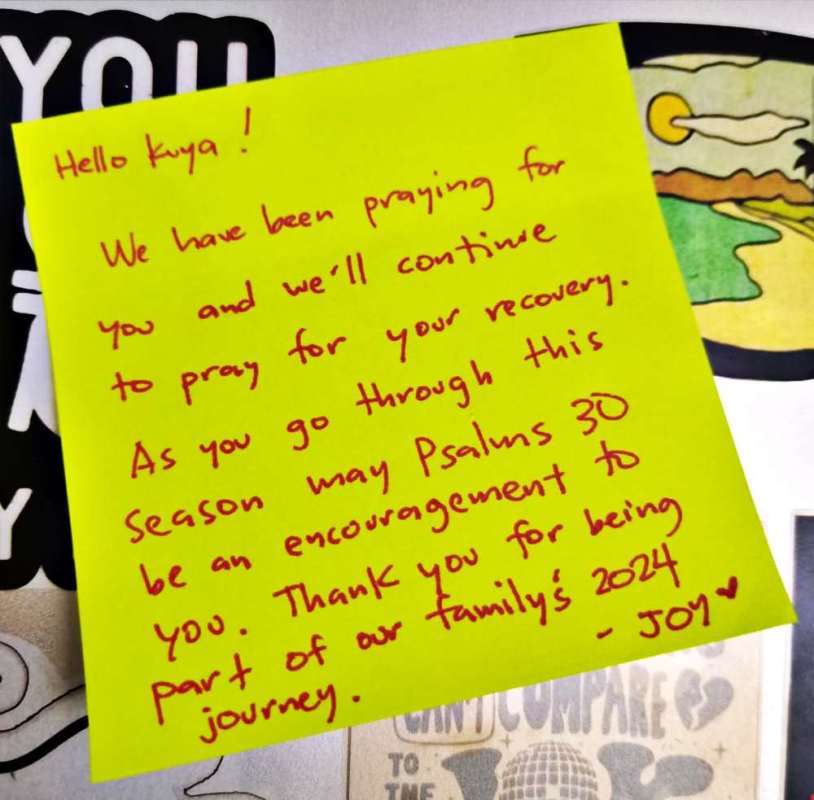 YOU
Hello Kuya!
We have been praying for
you and we'll continue
to pray for your recovery.
As you go through this
season may Psalms 30
be an encouragement to
you. Thank you for being
part of our family's 2024
journey.
- JOY ♥
Y
CAN'T COMPARE
TO
THE
JOY